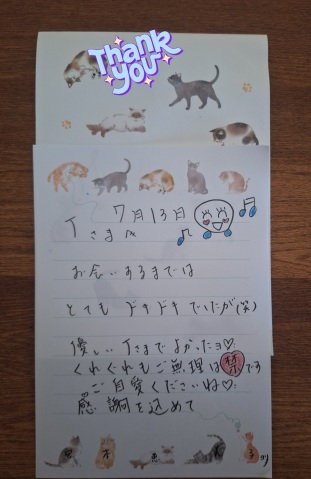 Thank
you
7月13日
Tさまへ
お会いするまでは
とてもドキドキでしたが(笑)
優しいTさまでよかったヨ♡
くれぐれもご無理は禁です
ご自愛くださいね♡
感謝を込めて